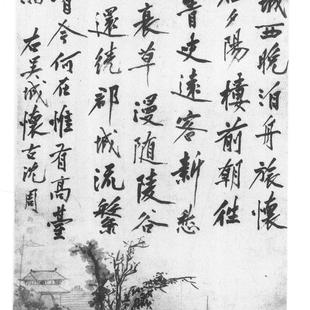 城西晚泊舟旅懷
夕陽樓前朝往
青史遠客新愁
衰草漫隨陵谷
還繞郡城流繁
今何在惟有高臺
右吴城懷古沈周